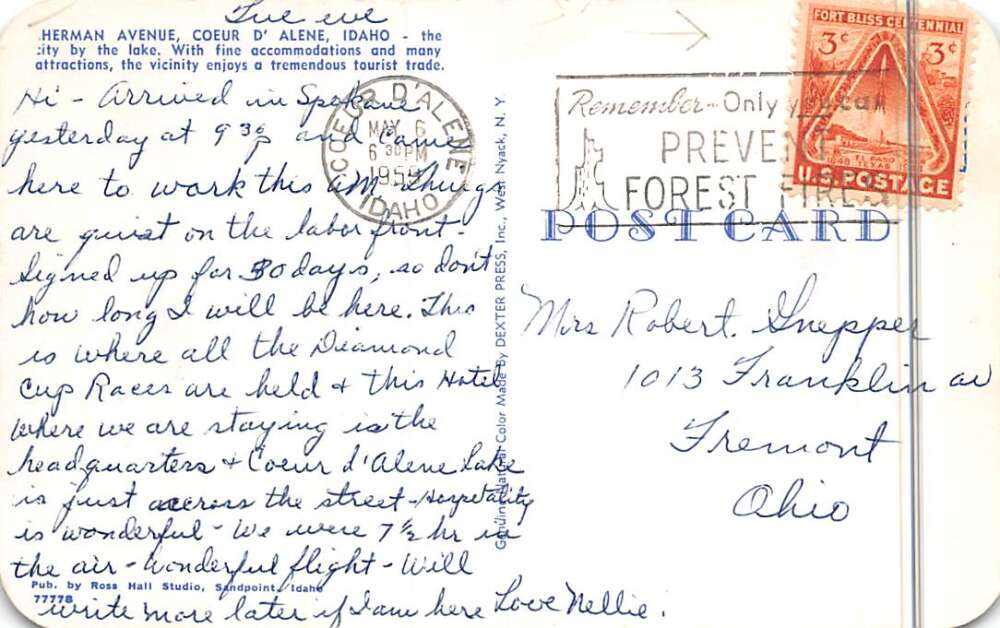 Tue eve
HERMAN AVENUE, COEUR D' ALENE, IDAHO - the
city by the lake. With fine accommodations and many
attractions, the vicinity enjoys a tremendous tourist trade.
Hi - Arrived in Spokane
yesterday at 9 30 p and came
here to work this AM. Things
are quiet on the labor front.
Signed up for 30 days, so don't
how long I will be here. This
is where all the Diamond
Cup Races are held & this Hotel
where we are staying is the
headquarters & Coeur d'Alene lake
is just across the street - Hospitality
is wonderful - We were 7 1/2 hr in
the air - wonderful flight - Will
write more later if I am here Love Nellie.
Pub. by Ross Hall Studio, Sandpoint, Idaho
77778
COEUR D'ALENE
MAY 6
6 30 PM
1959
IDAHO
Genuine Natural Color Made By DEXTER PRESS, Inc., West Nyack, N. Y.
Remember - Only you can
PREVENT
FOREST FIRES
FORT BLISS CENTENNIAL
3¢ 3¢
EL PASO
1848 TEXAS
U.S. POSTAGE
POST CARD
Mrs Robert. Snepper
1013 Franklin av
Fremont
Ohio